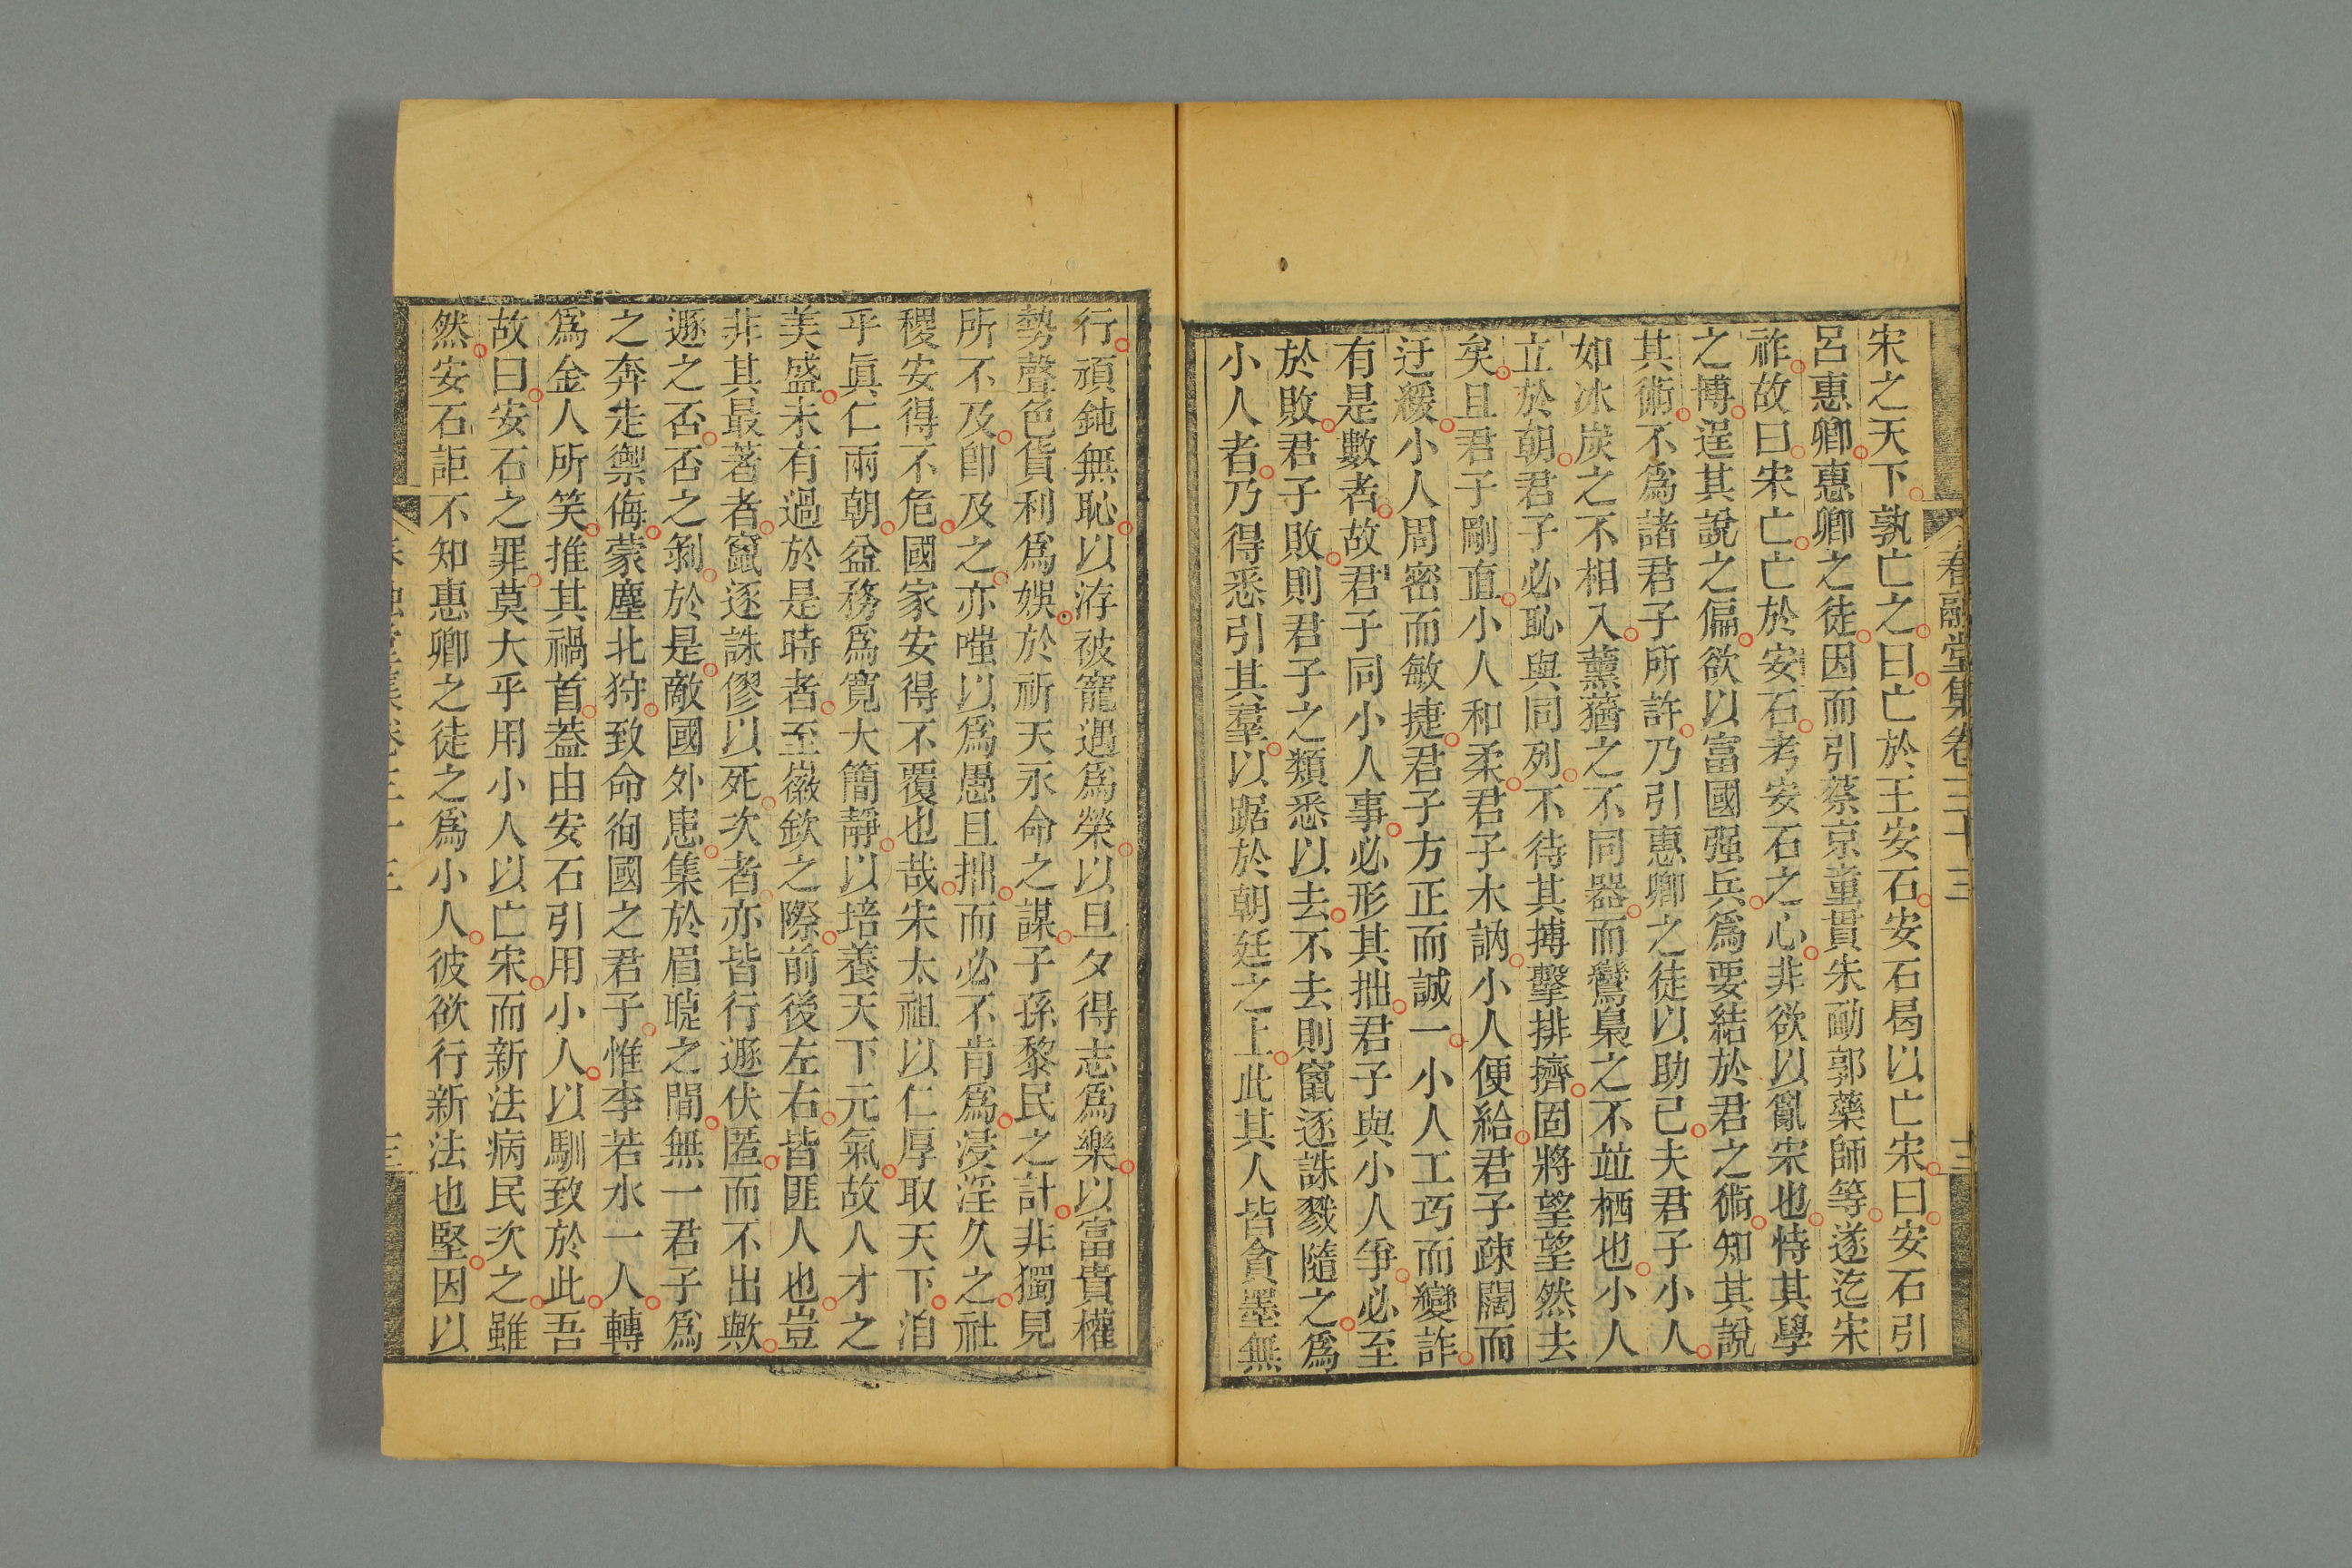 春融堂集卷三十三
二
宋之天下孰亡之曰亡於王安石安石曷以亡宋曰安石引
呂惠卿惠卿之徒因而引蔡京童貫朱勔郭藥師等遂迄宋
祚故曰宋亡亡於安石考安石之心非欲以亂宋也恃其學
之博逞其說之偏欲以富國强兵爲要結於君之術知其說
其術不爲諸君子所許乃引惠卿之徒以助己夫君子小人
如冰炭之不相入薰蕕之不同器而鸞梟之不竝栖也小人
立於朝君子必恥與同列不待其搏擊排擠固將望望然去
矣且君子剛直小人和柔君子木訥小人便給君子疎闊而
迂緩小人周密而敏捷君子方正而誠一小人工巧而變詐
有是數者故君子同小人事必形其拙君子與小人爭必至
於敗君子敗則君子之類悉以去不去則竄逐誅戮隨之爲
小人者乃得悉引其羣以踞於朝廷之上此其人皆貪墨無
行頑鈍無恥以洊被寵遇爲榮以旦夕得志爲樂以富貴權
勢聲色貨利爲娛於祈天永命之謀子孫黎民之計非獨見
所不及卽及之亦嗤以爲愚且拙而必不肯爲浸淫久之社
稷安得不危國家安得不覆也哉宋太祖以仁厚取天下洎
乎眞仁兩朝益務爲寬大簡靜以培養天下元氣故人才之
美盛未有過於是時者至徽欽之際前後左右皆匪人也豈
非其最著者竄逐誅僇以死次者亦皆行遯伏匿而不出歟
遯之否否之剝於是敵國外患集於眉睫之間無一君子爲
之奔走禦侮蒙塵北狩致命徇國之君子惟李若水一人轉
爲金人所笑推其禍首葢由安石引用小人以馴致於此吾
故曰安石之罪莫大乎用小人以亡宋而新法病民次之雖
然安石詎不知惠卿之徒之爲小人彼欲行新法也堅因以
三